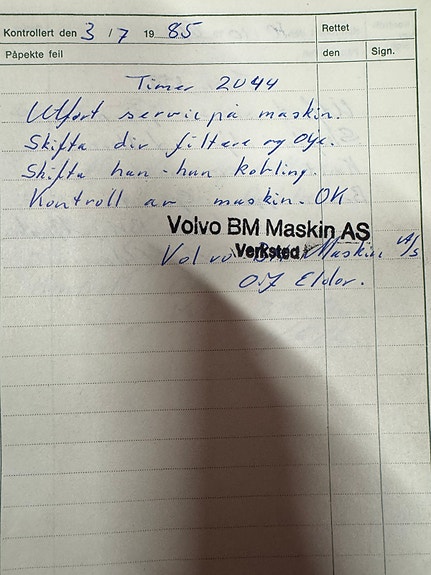 Kontrollert den 3 / 7 19 85
Rettet
Påpekte feil
den
Sign.
Timer 2044
Utført service på maskin.
Skifta div filtere og olje.
Skifta han-hun kobling.
Kontroll av maskin. OK
Volvo BM Maskin AS
Verksted
Volvo BM Maskin A/S